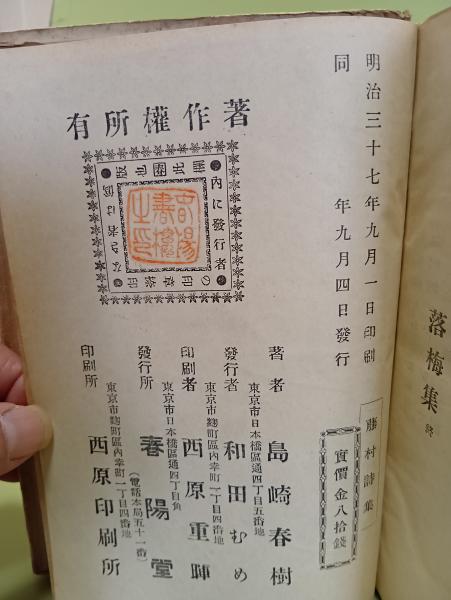 落梅集 終
明治三十七年九月一日印刷
同 年九月四日發行
藤村詩集
實價金八拾錢
著作權所有
內に發行者
著者 島崎春樹
東京市日本橋區通四丁目五番地
發行者 和田むめ
東京市麹町區內幸町一丁目四番地
印刷者 西原重暉
東京市日本橋區通四丁目角
發行所 春陽堂
(電話本局五十一番)
東京市麹町區內幸町一丁目四番地
印刷所 西原印刷所